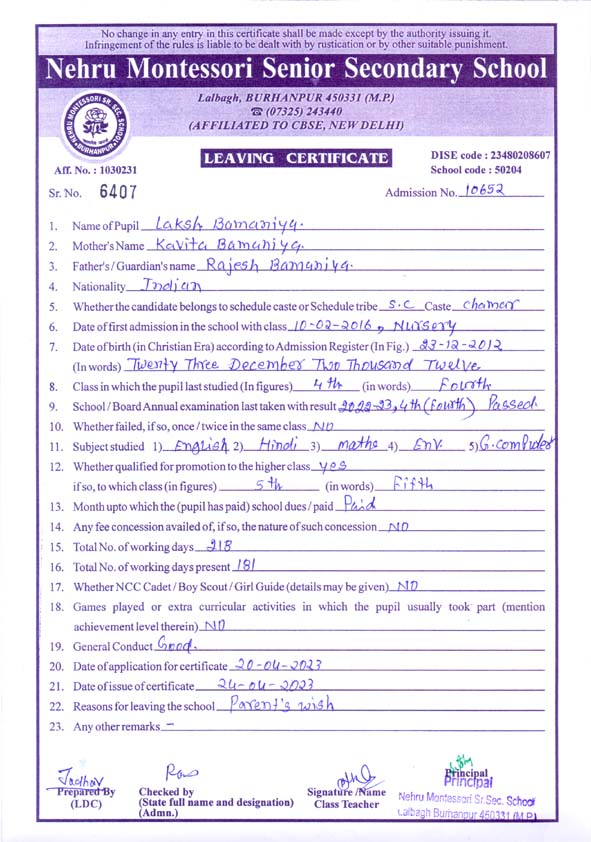 No change in any entry in this certificate shall be made except by the authority issuing it.
Infringement of the rules is liable to be dealt with by rustication or by other suitable punishment.
Nehru Montessori Senior Secondary School
Lalbagh, BURHANPUR 450331 (M.P.)
☎ (07325) 243440
(AFFILIATED TO CBSE, NEW DELHI)
NEHRU MONTESSORI SR. SEC. SCHOOL
BURHANPUR
LEAVING CERTIFICATE
DISE code : 23480208607
Aff. No. : 1030231 School code : 50204
Sr. No. 6407 Admission No. 10652
1. Name of Pupil Laksh Bamaniya.
2. Mother's Name Kavita Bamaniya.
3. Father's / Guardian's name Rajesh Bamaniya.
4. Nationality Indian
5. Whether the candidate belongs to schedule caste or Schedule tribe S.C Caste chamar
6. Date of first admission in the school with class 10-02-2016, Nursery
7. Date of birth (in Christian Era) according to Admission Register (In Fig.) 23-12-2012
(In words) Twenty Three December Two Thousand Twelve
8. Class in which the pupil last studied (In figures) 4th (in words) Fourth
9. School / Board Annual examination last taken with result 2022-23, 4th (Fourth) Passed
10. Whether failed, if so, once / twice in the same class NO
11. Subject studied 1) English 2) Hindi 3) maths 4) Env. 5) G.computer
12. Whether qualified for promotion to the higher class yes
if so, to which class (in figures) 5th (in words) Fifth
13. Month upto which the (pupil has paid) school dues / paid Paid
14. Any fee concession availed of, if so, the nature of such concession NO
15. Total No. of working days 218
16. Total No. of working days present 181
17. Whether NCC Cadet / Boy Scout / Girl Guide (details may be given) NO
18. Games played or extra curricular activities in which the pupil usually took part (mention
achievement level therein) NO
19. General Conduct Good.
20. Date of application for certificate 20-04-2023
21. Date of issue of certificate 24-04-2023
22. Reasons for leaving the school Parent's wish
23. Any other remarks –
Jadhav
Prepared By
(LDC)
Checked by
(State full name and designation)
(Admn.)
Signature /Name
Class Teacher
Principal
Principal
Nehru Montessori Sr.Sec. School
Lalbagh Burhanpur 450331 (M.P.)